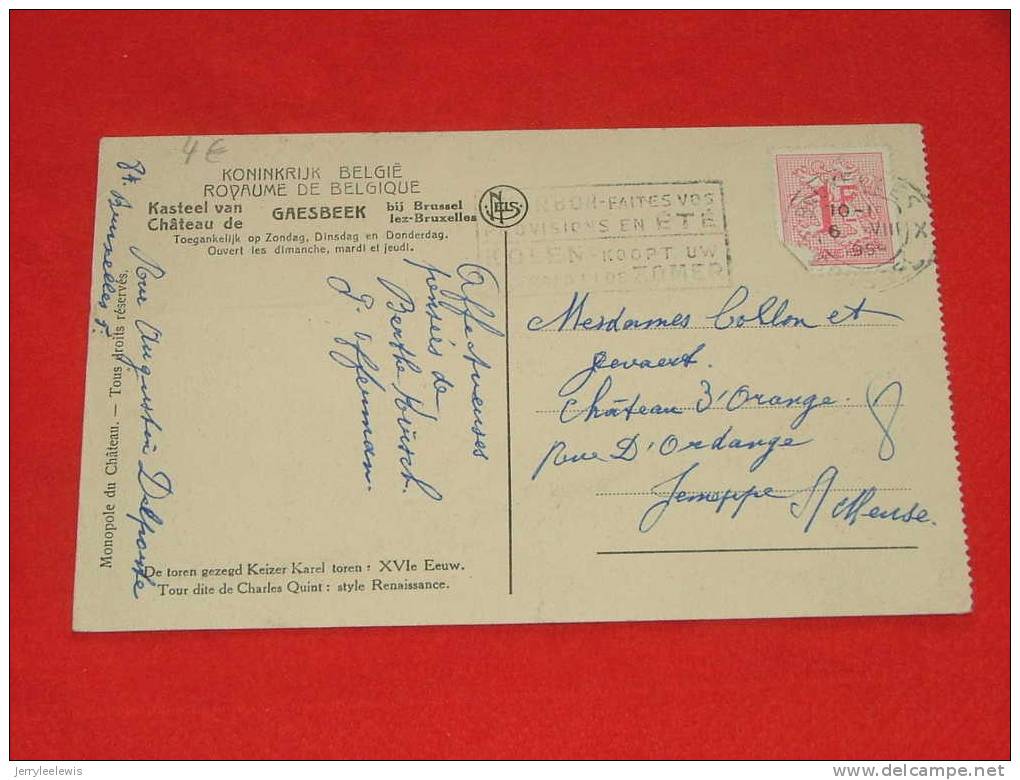 4€
KONINKRIJK BELGIË
ROYAUME DE BELGIQUE
Kasteel van
Château de
GAESBEEK
bij Brussel
lez-Bruxelles
Toegankelijk op Zondag, Dinsdag en Donderdag.
Ouvert les dimanche, mardi et jeudi.
NELS
FAITES VOS
PROVISIONS EN ÉTÉ
KOLEN-KOOPT UW
ZOMER
1F
10-1
6 VIII
Affectueuses
pensées de
Berthe
84.
Bruxelles 5.
Rue Augustin Delporte
Monopole du Château. — Tous droits réservés.
Mesdames Collon et
Gevaert.
Château d'Orange.
Rue D'Ordange
Jemeppe S/Meuse.
8
De toren gezegd Keizer Karel toren : XVIe Eeuw.
Tour dite de Charles Quint : style Renaissance.
jerryleelewis
delcampe.net